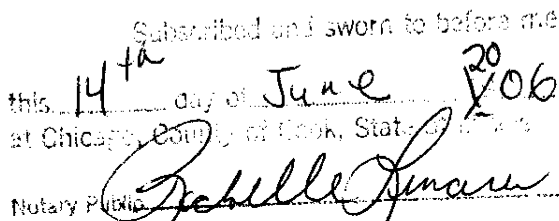 Subscribed and sworn to before me
this 14th day of June 2006
at Chicago, County of Cook, State of
Notary Public Rochelle